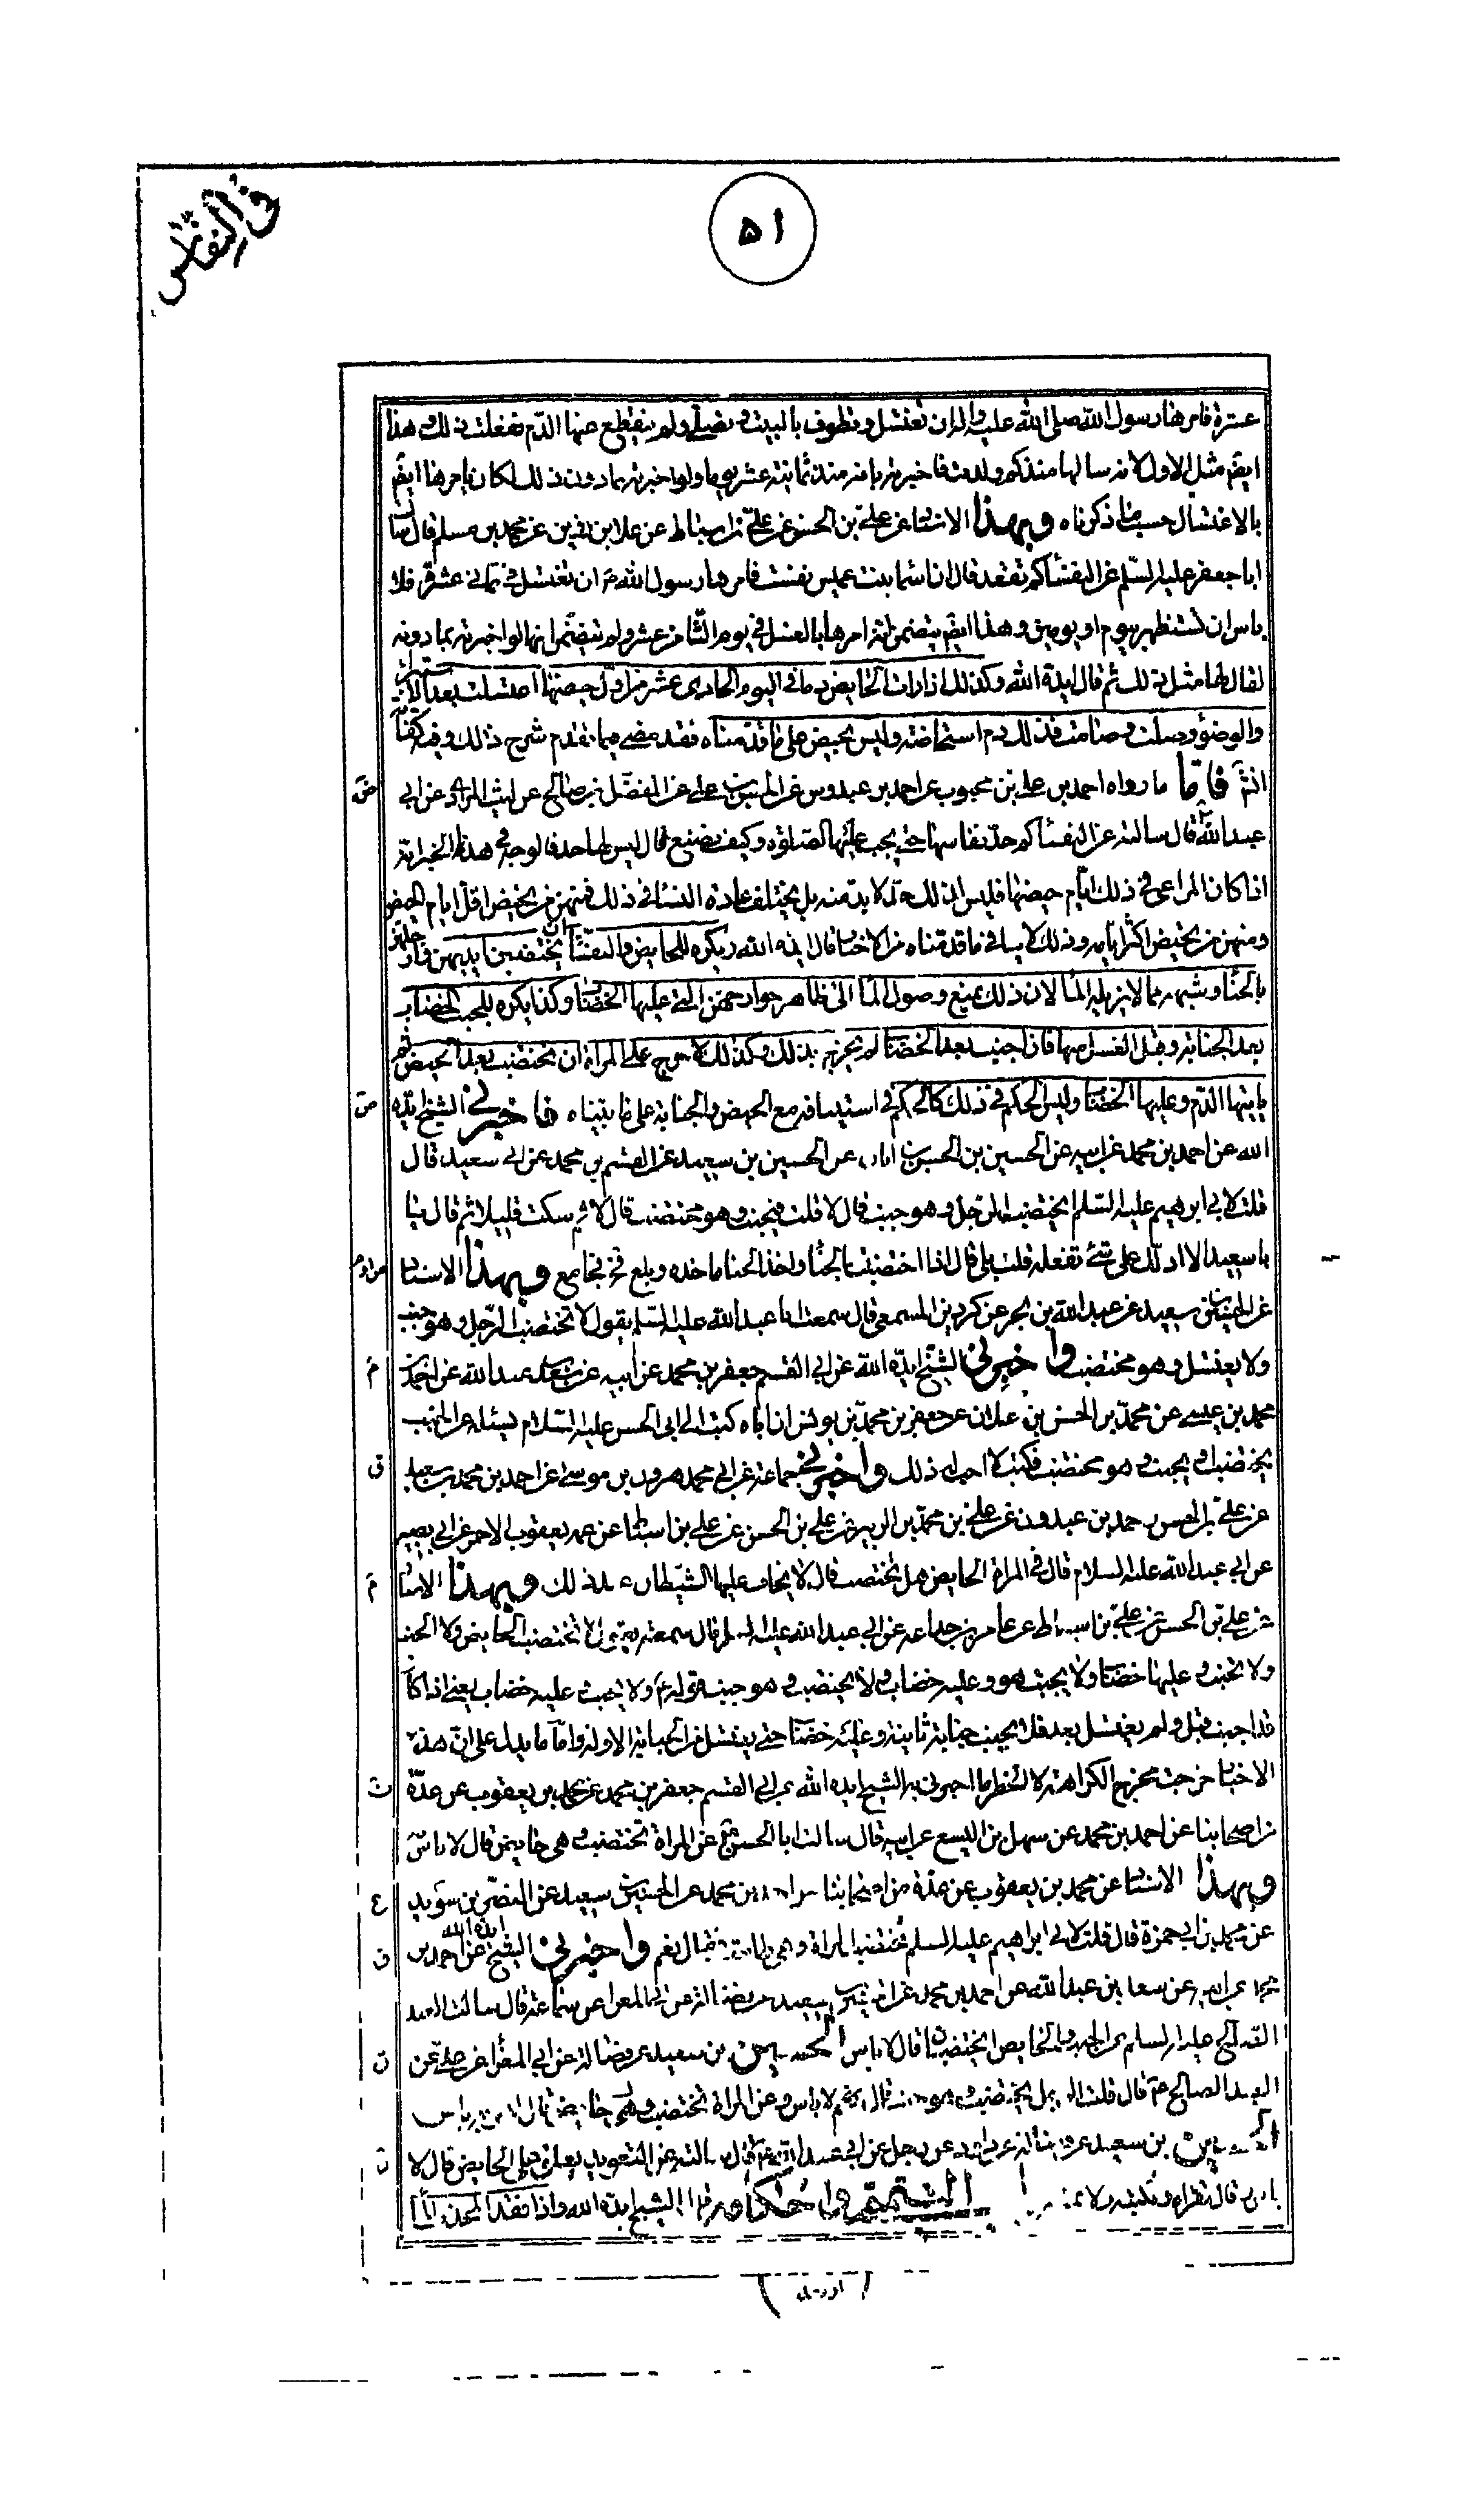 في النفاس
٥١
عشرة فامرها رسول الله صلى الله عليه واله ان تغتسل وتطوف بالبيت وتصلي ولم ينقطع عنها الدم ففعلت ذلك وهذا
ايض مثل الاول لانه سالها منذ كم ولدت فاخبرته بانه منذ ثمانية عشر يوما ولو اخبرته بما دون ذلك لكان يامرها ايض
بالاغتسال حسب ما ذكرناه وبهذا الاسناد عن علي بن الحسن عن علي بن اسباط عن علا بن رزين عن محمد بن مسلم قال سالت
ابا جعفر عليه السلم عن النفساء كم تقعد قال ان اسما بنت عميس نفست فامرها رسول الله ص ان تغتسل في ثماني عشرة فلا
باس ان تستظهر بيوم او يومين وهذا ايض يتضمن انه امرها بالغسل في يوم الثامن عشر ولم يتضمن انها لو اخبرته بما دونه
لقال لها مثل ذلك ثم قال ايده الله وكذلك اذا رات الحايض دما في اليوم الحادي عشر من اول حيضها اغتسلت بعد الاستبراء
والوضؤ وصلت وصامت فذلك دم استحاضة وليس بحيض على ما قدمناه فقد مضى فيما تقدم شرح ذلك وفيه كفاية
انش فاما ما رواه احمد بن علي بن محبوب عن احمد بن عبدوس عن الحسن بن علي عن المفضل بن صالح عن ليث المرادي عن ابي
عبد الله ع قال سالته عن النفساء كم حد نفاسها حتى يجب عليها الصلوة وكيف تصنع قال ليس لها حد فالوجه في هذا الخبر انه
اذا كان المراعى في ذلك ايام حيضها فليس لذلك حد لا بد منه بل يختلف عادة النساء في ذلك فمنهن من يحيض اقل ايام الحيض
ومنهن من يحيض اكثر ايامه وذلك لا ينافي ما قدمناه من الاخبار قال ايده الله ويكره للحايض والنفساء ان يختضبن ايديهن وارجلهن
بالحناء وشبهه مما لا يزيله الماء لان ذلك يمنع وصول الماء الى ظاهر جوارحهن التي عليها الخضاب وكذا يكره للجنب الخضاب
بعد الجنابة وقبل الغسل منها فان اجنب بعد الخضاب لم يحرج بذلك وكذلك لا حرج على المراة ان تختضب بعد الحيض ثم
ياتيها الدم وعليها الخضاب وليس الحكم في ذلك كالحكم في استينافه مع الحيض والجنابة على ما بيناه فاخبرني الشيخ ايده
الله عن احمد بن محمد عن ابيه عن الحسين بن الحسن بن ابان عن الحسين بن سعيد عن القسم بن محمد عن ابي سعيد قال
قلت لابي ابرهيم عليه السلم ايختضب الرجل وهو جنب قال لا قلت فيجنب وهو مختضب قال لا ثم سكت قليلا ثم قال يا
با سعيد الا ادلك على شئ تفعله قلت بلى قال اذا اختضبت بالحناء واخذ الحنا ماخذه وبلغ فح فجامع وبهذا الاسناد
عن الحسين بن سعيد عن عبد الله بن بحر عن كردين المسمعي قال سمعت ابا عبد الله عليه السلم يقول لا يختضب الرجل وهو جنب
ولا يغتسل وهو مختضب واخبرني الشيخ ايده الله عن ابي القسم جعفر بن محمد عن ابيه عن سعد بن عبد الله عن احمد بن
محمد بن عيسى عن محمد بن الحسن بن علان عن جعفر بن محمد بن يونس ان اباه كتب الى ابي الحسن عليه السلام يسئله عن الجنب
يختضب او يجنب وهو مختضب فكتب لا احب له ذلك واخبرني جماعة عن ابي محمد هرون بن موسى عن احمد بن محمد بن سعيد
عن علي بن الحسن واحمد بن عبدون عن علي بن محمد بن الزبير عن علي بن الحسن عن علي بن اسباط عن عمه يعقوب الاحمر عن ابي بصير
عن ابي عبد الله عليه السلام قال في المراة الحايض هل تختضب قال لا يخاف عليها الشيطان عند ذلك وبهذا الاسناد
عن علي بن الحسن عن علي بن اسباط عن عامر بن جذاعة عن ابي عبد الله عليه السلم قال سمعته يقول لا تختضب الحايض ولا الجنب
ولا تجنب وعليها خضاب ولا يجنب هو وعليه خضاب ولا يختضب وهو جنب قوله ع ولا يجنب وعليه خضاب يعني اذا كان
قد اجنب قبل ولم يغتسل بعد فلا يجنب جنابة ثانية وعليه خضاب حتى يغتسل من الجنابة الاولة واما ما يدل على ان هذه
الاخبار خرجت مخرج الكراهة لا الحظر ما اخبرني به الشيخ ايده الله عن ابي القسم جعفر بن محمد عن محمد بن يعقوب عن عدة
من اصحابنا عن احمد بن محمد عن سهل بن اليسع عن ابيه قال سالت ابا الحسن ع عن المراة تختضب وهي حايض قال لا باس
وبهذا الاسناد عن محمد بن يعقوب عن عدة من اصحابنا عن احمد بن محمد عن الحسين بن سعيد عن النضر بن سويد
عن محمد بن ابي حمزة قال قلت لابي ابراهيم عليه السلم تختضب المراة وهي طامث فقال نعم واخبرني الشيخ ايده الله عن احمد بن
محمد عن ابيه عن سعد بن عبد الله عن احمد بن محمد عن الحسين بن سعيد عن فضالة عن ابي المعزا عن سماعة قال سالت العبد
الصالح عليه السلم عن الجنب والحايض ايختضبان قال لا باس الحسين بن سعيد عن فضالة عن ابي المعزا عن علي عن
العبد الصالح ع قال قلت الرجل يختضب وهو جنب قال لا باس وعن المراة تختضب وهي حايض قال ليس به باس
الحسين بن سعيد عن فضالة عن داود عن رجل عن ابي عبد الله ع قال سالته عن التعويذ يعلق على الحايض قال لا
باس قال تقراه وتكتبه ولا التيمم واحكامه قال الشيخ ايده الله واذا فقد المحدث الماء